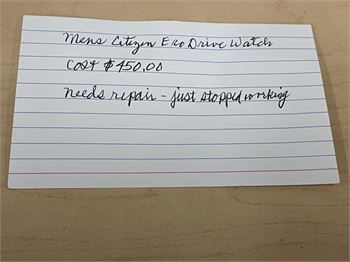 Mens Citizen Eco Drive Watch
Cost $450.00
needs repair - just stopped working